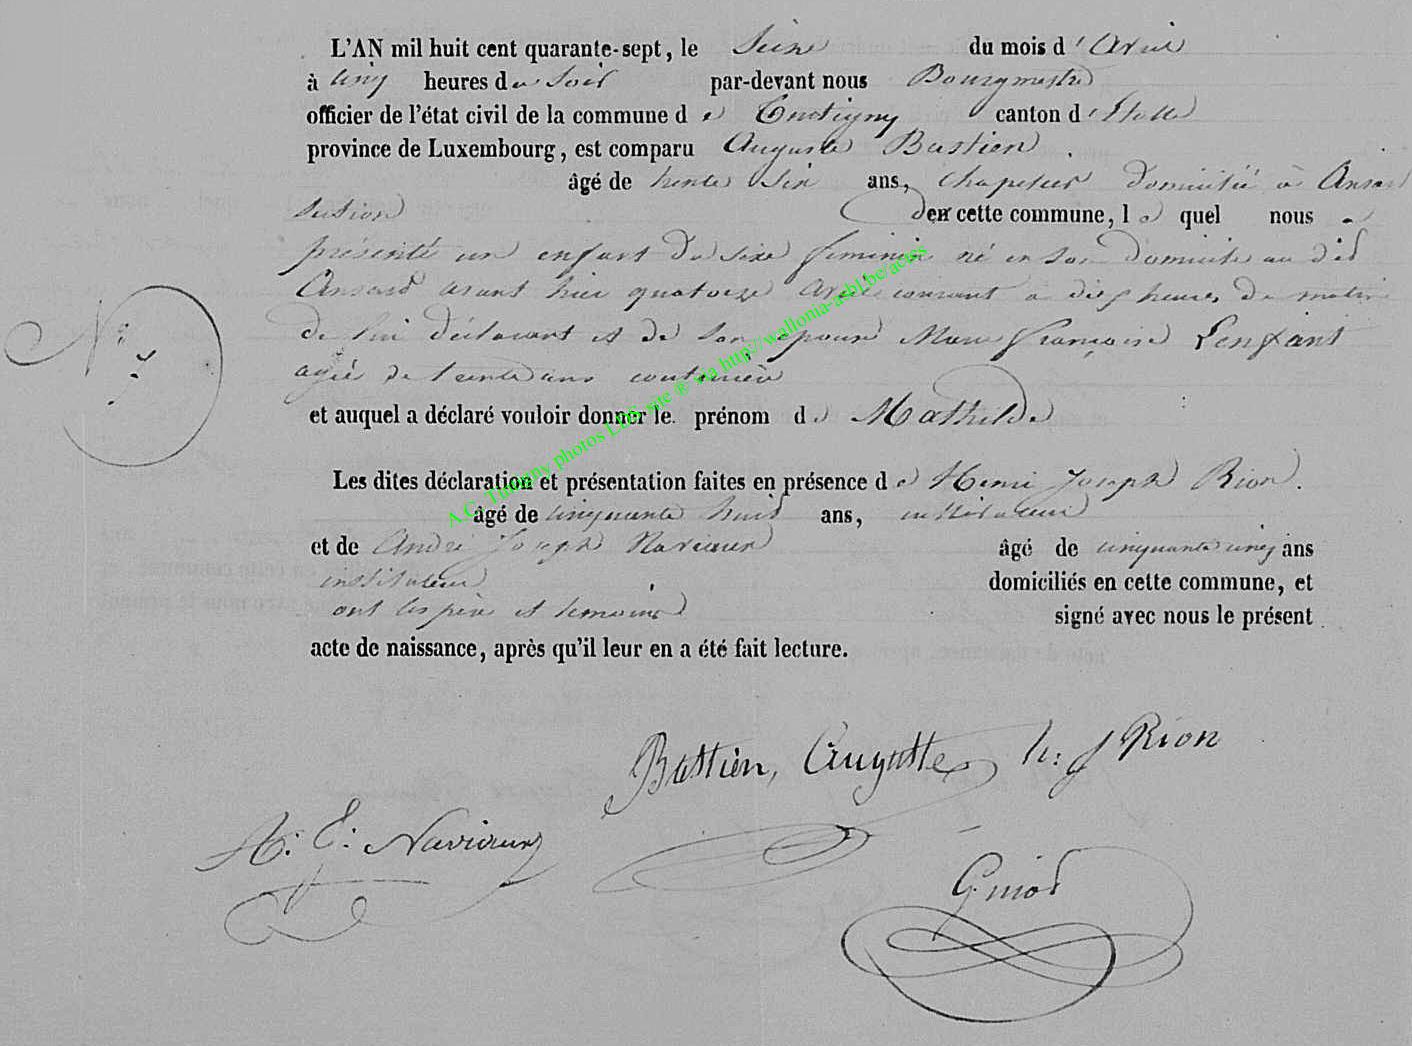 L'AN mil huit cent quarante-sept, le Seize du mois d'Avril
à cinq heures du Soir par-devant nous Bourgmestre
officier de l'état civil de la commune de Tintigny canton d'Etalle
province de Luxembourg, est comparu Auguste Bastien
âgé de trente Six ans, domicilié à Ansart
section de cette commune, lequel nous a
présenté un enfant du sexe féminin né en son domicile au dit
Ansart avant hier quatorze Avril courant à dix heures du matin
de lui déclarant et de son épouse Marie Françoise Lenfant
agée de trente ans couturière
et auquel a déclaré vouloir donner le prénom de Mathilde
Nº 7
Les dites déclaration et présentation faites en présence de Henri Joseph Rion.
âgé de cinquante huit ans, instituteur
et de André Joseph Naviaux âgé de cinquante cinq ans
instituteur domiciliés en cette commune, et
ont les père et témoins signé avec nous le présent
acte de naissance, après qu'il leur en a été fait lecture.
Bastien, Auguste h: J Rion
A. Naviaux
A.C. Tintigny photos LDS site ® via http://wallonia-asbl.be/actes